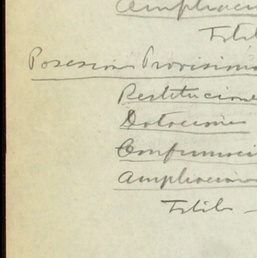 Ampliacion
Titul
Posesion Provisiona
Restitucione
Dotaciones
Confirmaci
Ampliacion
Titulo -